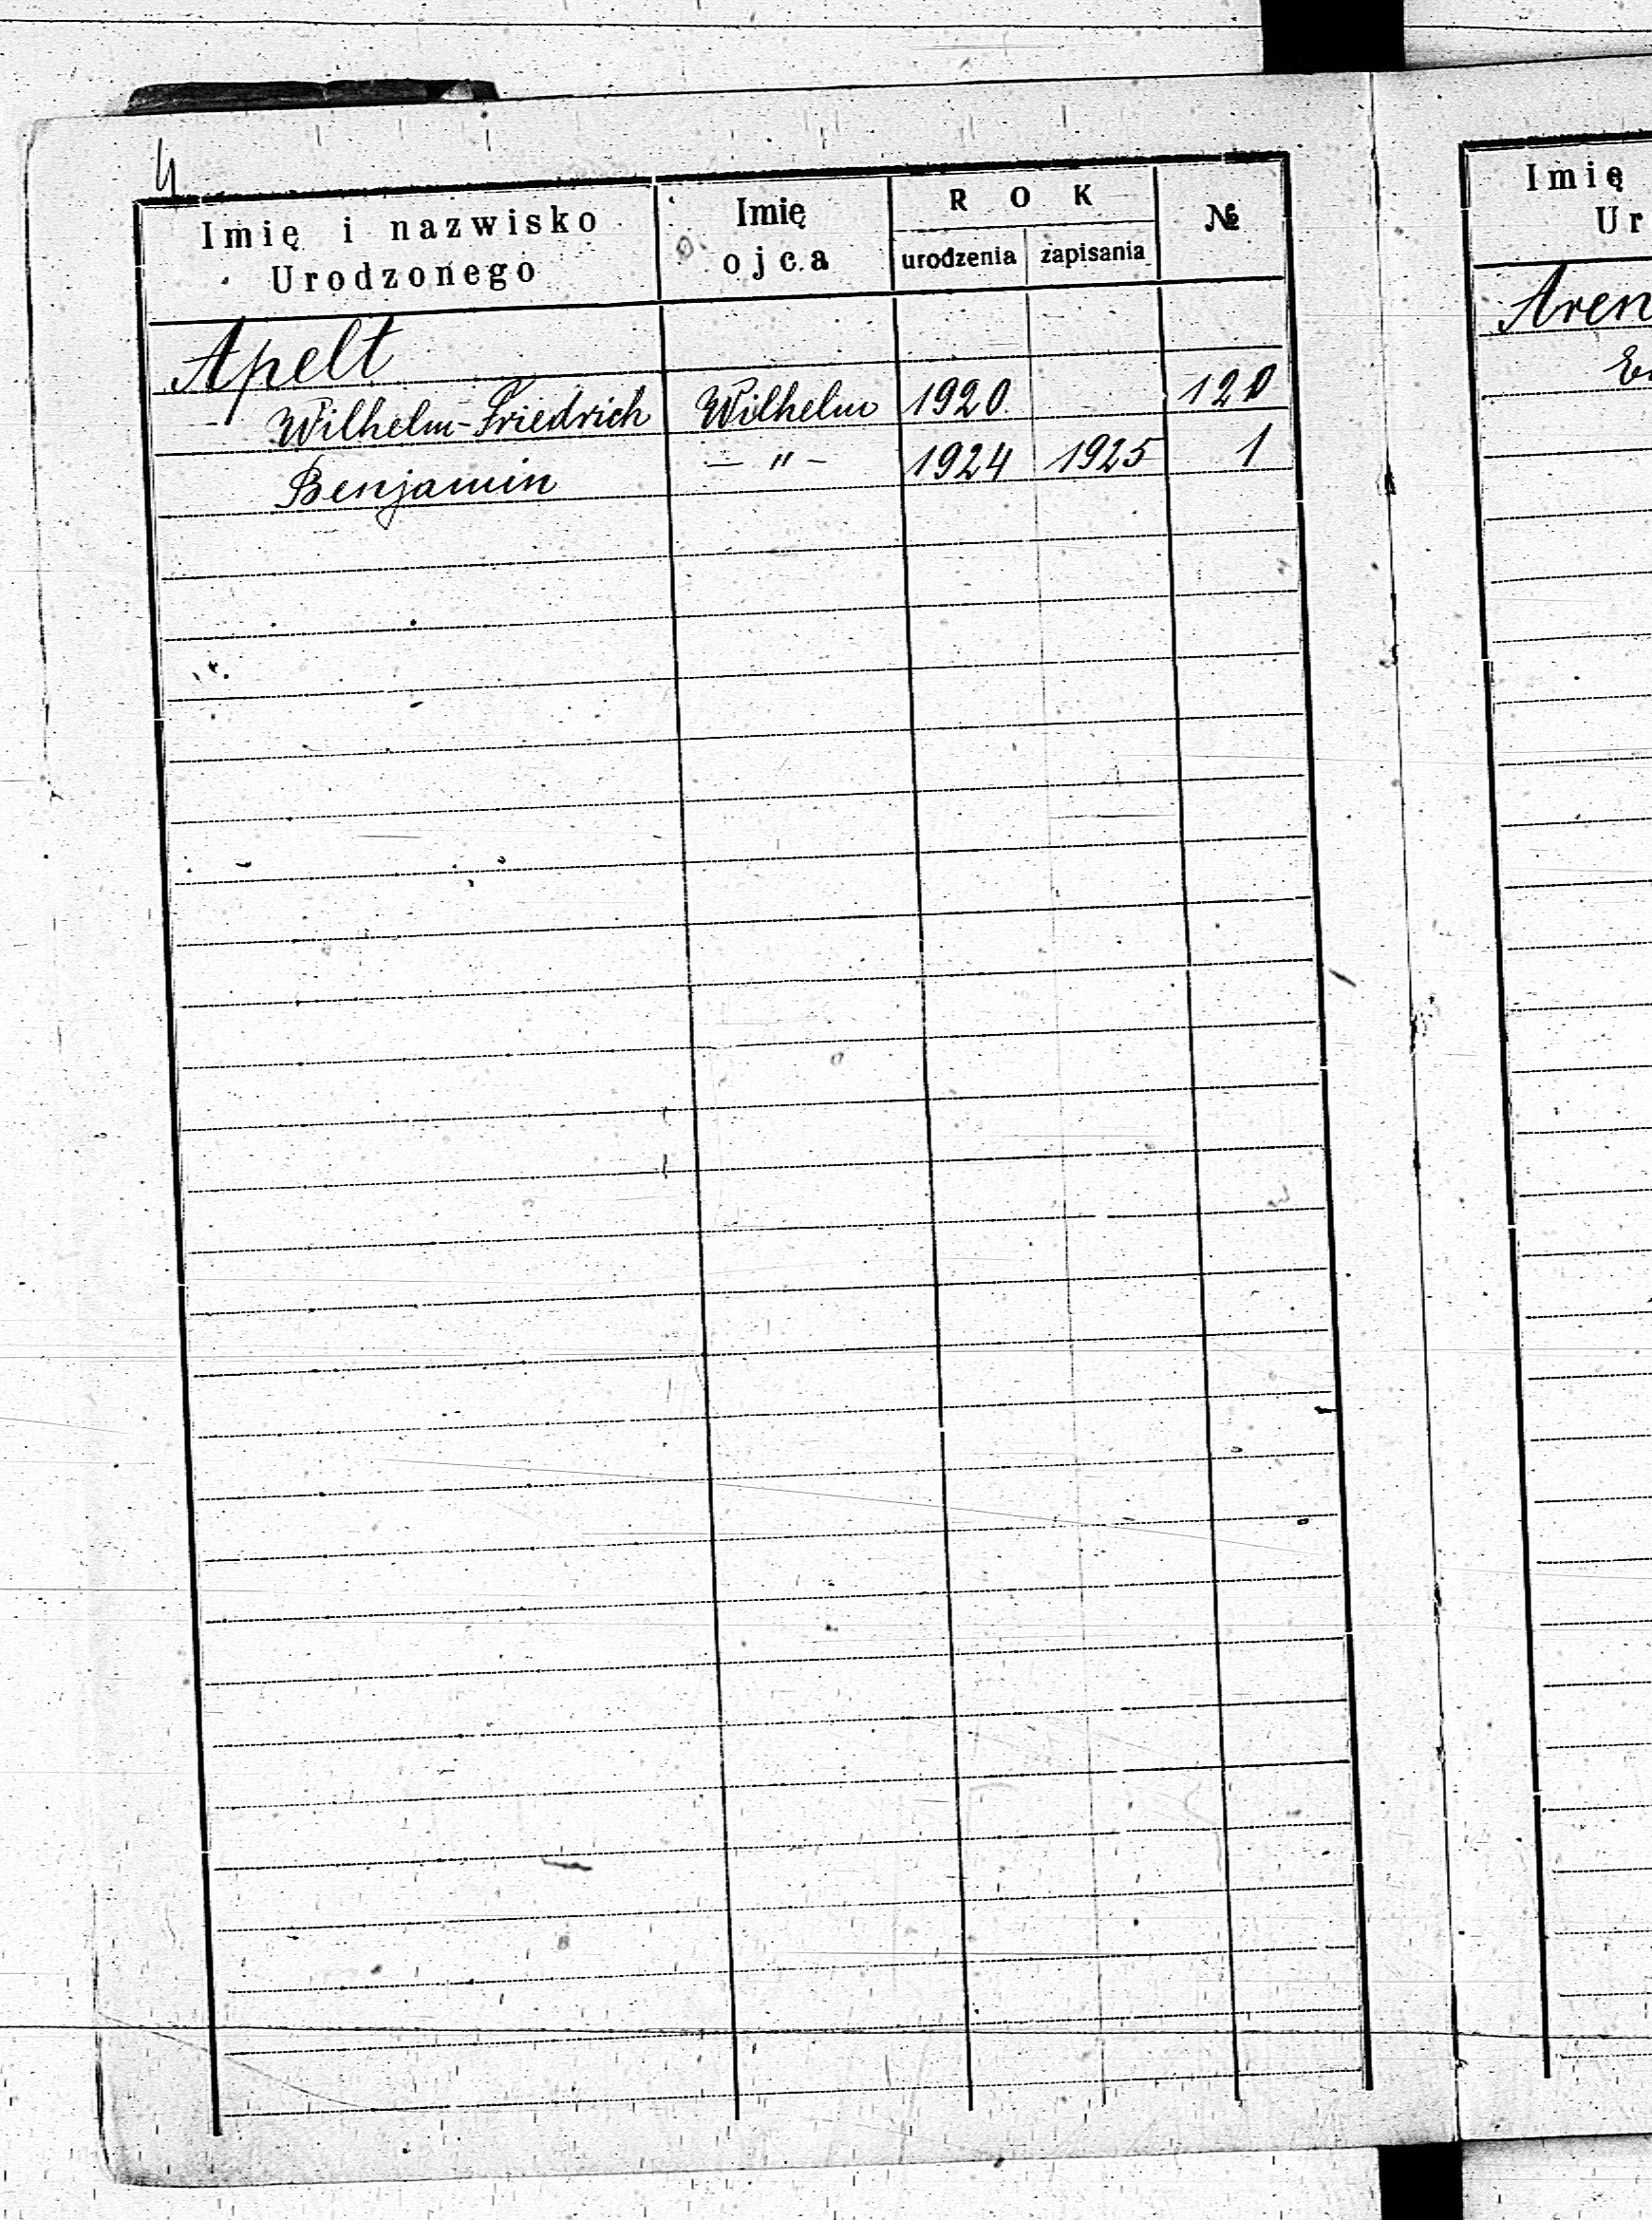 4
Imię i nazwisko Urodzonego
Imię ojca
ROK
urodzenia zapisania
№
Apelt
Wilhelm-Friedrich Wilhelm 1920 120
Benjamin — " - 1924 1925 1
Imię
Ur
Aren